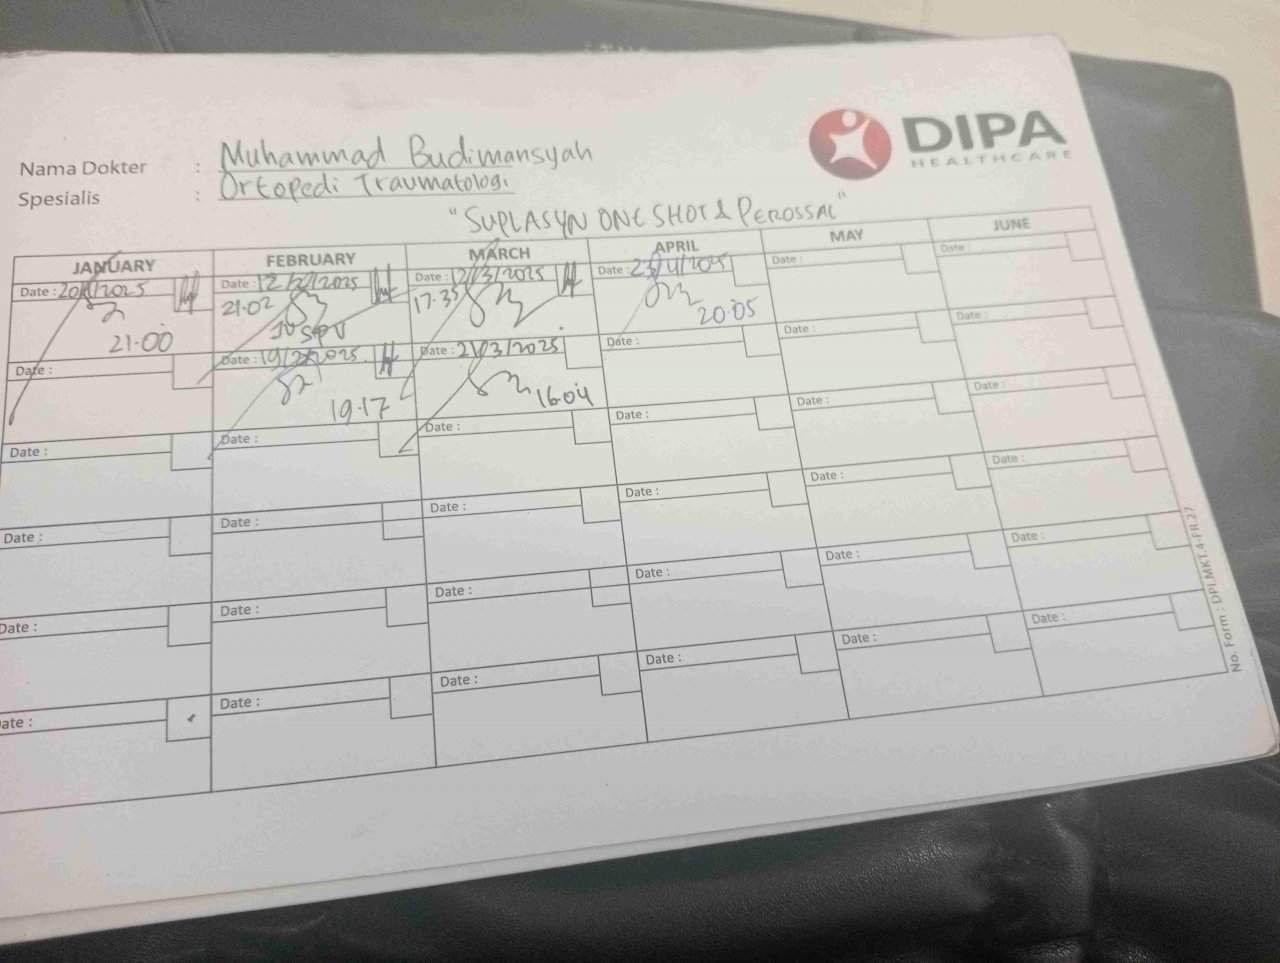 DIPA
HEALTHCARE
Nama Dokter : Muhammad Budimansyah
Spesialis : Ortopedi Traumatologi
"SUPLASYN ONE SHOT & PEROSSAL"
JANUARY FEBRUARY MARCH APRIL MAY JUNE
Date : 2025 Date : 12/2/2025 Date : 12/3/2025 Date : 23/4/2025 Date : Date :
21.00 21.02 17.35 20.05
Date : Date : 19/2/2025 Date : 21/3/2025 Date : Date : Date :
19.17 16.04
Date : Date : Date : Date : Date : Date :
Date : Date : Date : Date : Date : Date :
Date : Date : Date : Date : Date : Date :
Date : Date : Date : Date : Date : Date :
No. Form : DPI.MKT.4-FR.27